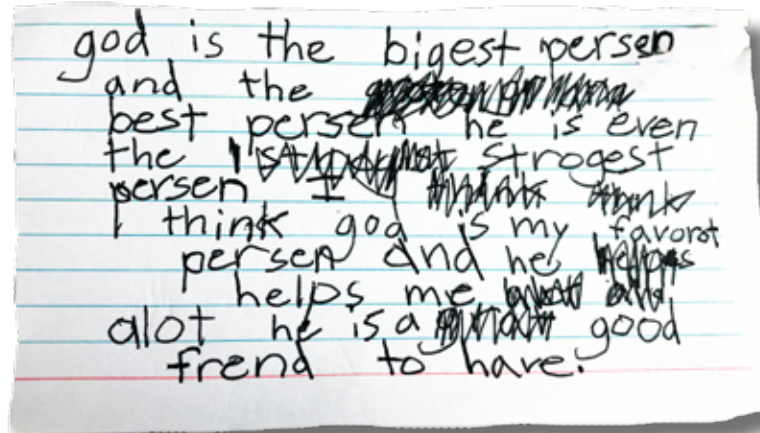 god is the bigest persen
and the
best persen he is even
the strogest
persen I
I think god is my favorot
persen and he
helps me
alot he is a good
frend to have.